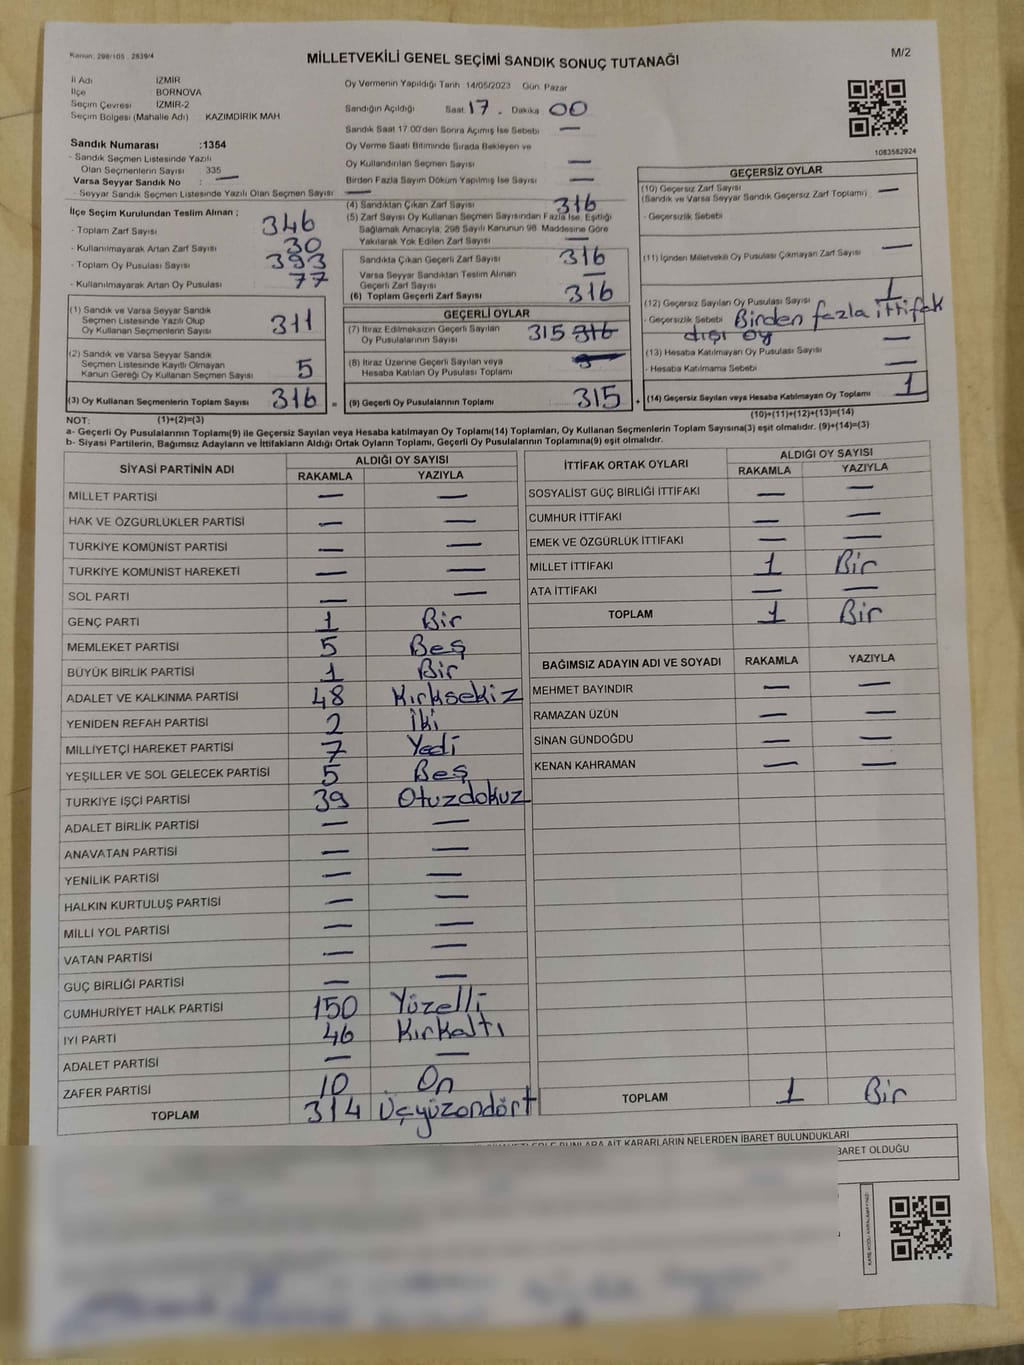 Kanun: 298/105 , 2839/4
MİLLETVEKİLİ GENEL SEÇİMİ SANDIK SONUÇ TUTANAĞI
M/2
İl Adı İZMİR
İlçe BORNOVA
Seçim Çevresi İZMİR-2
Seçim Bölgesi (Mahalle Adı) KAZIMDİRİK MAH
Sandık Numarası :1354
- Sandık Seçmen Listesinde Yazılı
Olan Seçmenlerin Sayısı 335
Varsa Seyyar Sandık No : —
- Seyyar Sandık Seçmen Listesinde Yazılı Olan Seçmen Sayısı —
İlçe Seçim Kurulundan Teslim Alınan ;
- Toplam Zarf Sayısı 346
- Kullanılmayarak Artan Zarf Sayısı 30
- Toplam Oy Pusulası Sayısı 393
- Kullanılmayarak Artan Oy Pusulası 77
(1) Sandık ve Varsa Seyyar Sandık
Seçmen Listesinde Yazılı Olup
Oy Kullanan Seçmenlerin Sayısı 311
(2) Sandık ve Varsa Seyyar Sandık
Seçmen Listesinde Kayıtlı Olmayan
Kanun Gereği Oy Kullanan Seçmen Sayısı 5
(3) Oy Kullanan Seçmenlerin Toplam Sayısı 316 =
Oy Vermenin Yapıldığı Tarih 14/05/2023 Gün Pazar
Sandığın Açıldığı Saat 17 . Dakika 00
Sandık Saat 17.00'den Sonra Açımış İse Sebebi —
Oy Verme Saati Bitiminde Sırada Bekleyen ve
Oy Kullandırılan Seçmen Sayısı —
Birden Fazla Sayım Döküm Yapılmış İse Sayısı —
(4) Sandıktan Çıkan Zarf Sayısı 316
(5) Zarf Sayısı Oy Kullanan Seçmen Sayısından Fazla İse, Eşitliği
Sağlamak Amacıyla, 298 Sayılı Kanunun 98. Maddesine Göre
Yakılarak Yok Edilen Zarf Sayısı —
Sandıkta Çıkan Geçerli Zarf Sayısı 316
Varsa Seyyar Sandıktan Teslim Alınan
Geçerli Zarf Sayısı —
(6) Toplam Geçerli Zarf Sayısı 316
GEÇERLİ OYLAR
(7) İtiraz Edilmeksizin Geçerli Sayılan
Oy Pusulasının Sayısı 315 316
(8) İtiraz Üzerine Geçerli Sayılan veya
Hesaba Katılan Oy Pusulası Toplamı
(9) Geçerli Oy Pusulalarının Toplamı : 315 +
1083582924
GEÇERSİZ OYLAR
(10) Geçersiz Zarf Sayısı —
(Sandık ve Varsa Seyyar Sandık Geçersiz Zarf Toplamı)
- Geçersizlik Sebebi
(11) İçinden Milletvekili Oy Pusulası Çıkmayan Zarf Sayısı —
(12) Geçersiz Sayılan Oy Pusulası Sayısı 1
- Geçersizlik Sebebi Birden fazla ittifak
dışı oy
(13) Hesaba Katılmayan Oy Pusulası Sayısı —
- Hesaba Katılmama Sebebi —
(14) Geçersiz Sayılan veya Hesaba Katılmayan Oy Toplamı 1
NOT: (1)+(2)=(3) (10)+(11)+(12)+(13)=(14)
a- Geçerli Oy Pusulalarının Toplamı(9) ile Geçersiz Sayılan veya Hesaba katılmayan Oy Toplamı(14) Toplamları, Oy Kullanan Seçmenlerin Toplam Sayısına(3) eşit olmalıdır. (9)+(14)=(3)
b- Siyasi Partilerin, Bağımsız Adayların ve İttifakların Aldığı Ortak Oyların Toplamı, Geçerli Oy Pusulalarının Toplamına(9) eşit olmalıdır.
SİYASİ PARTİNİN ADI ALDIĞI OY SAYISI
RAKAMLA YAZIYLA
MİLLET PARTİSİ — —
HAK VE ÖZGÜRLÜKLER PARTİSİ — —
TÜRKİYE KOMÜNİST PARTİSİ — —
TÜRKİYE KOMÜNİST HAREKETİ — —
SOL PARTİ — —
GENÇ PARTİ 1 Bir
MEMLEKET PARTİSİ 5 Beş
BÜYÜK BİRLİK PARTİSİ 1 Bir
ADALET VE KALKINMA PARTİSİ 48 Kırksekiz
YENİDEN REFAH PARTİSİ 2 İki
MİLLİYETÇİ HAREKET PARTİSİ 7 Yedi
YEŞİLLER VE SOL GELECEK PARTİSİ 5 Beş
TÜRKİYE İŞÇİ PARTİSİ 39 Otuzdokuz
ADALET BİRLİK PARTİSİ — —
ANAVATAN PARTİSİ — —
YENİLİK PARTİSİ — —
HALKIN KURTULUŞ PARTİSİ — —
MİLLİ YOL PARTİSİ — —
VATAN PARTİSİ — —
GÜÇ BİRLİĞİ PARTİSİ — —
CUMHURİYET HALK PARTİSİ 150 Yüzelli
İYİ PARTİ 46 Kırkaltı
ADALET PARTİSİ — —
ZAFER PARTİSİ 10 On
TOPLAM 314 Üçyüzondört
İTTİFAK ORTAK OYLARI ALDIĞI OY SAYISI
RAKAMLA YAZIYLA
SOSYALİST GÜÇ BİRLİĞİ İTTİFAKI — —
CUMHUR İTTİFAKI — —
EMEK VE ÖZGÜRLÜK İTTİFAKI — —
MİLLET İTTİFAKI 1 Bir
ATA İTTİFAKI — —
TOPLAM 1 Bir
BAĞIMSIZ ADAYIN ADI VE SOYADI RAKAMLA YAZIYLA
MEHMET BAYINDIR — —
RAMAZAN ÜZÜN — —
SİNAN GÜNDOĞDU — —
KENAN KAHRAMAN — —
TOPLAM 1 Bir
BUNLARA AİT KARARLARIN NELERDEN İBARET BULUNDUKLARI
BARET OLDUĞU